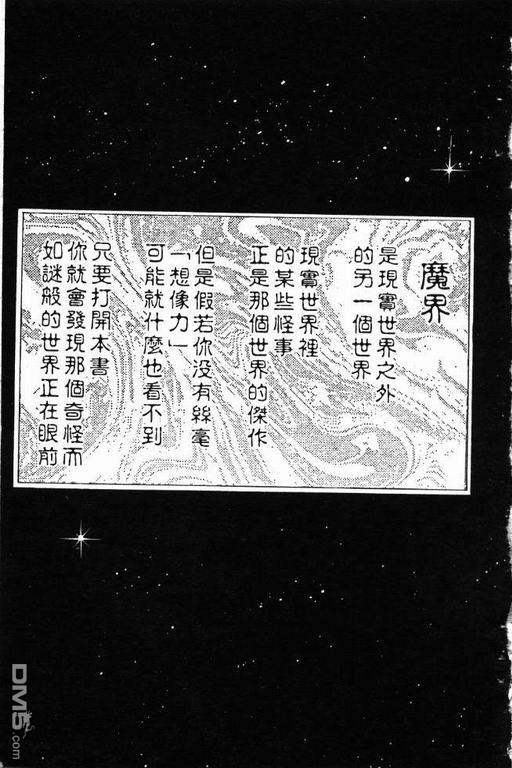 魔界
是現實世界之外
的另一個世界
現實世界裡
的某些怪事
正是那個世界的傑作
但是假若你沒有絲毫
「想像力」
可能就什麼也看不到
只要打開本書
你就會發現那個奇怪而
如謎般的世界正在眼前
DM5.com